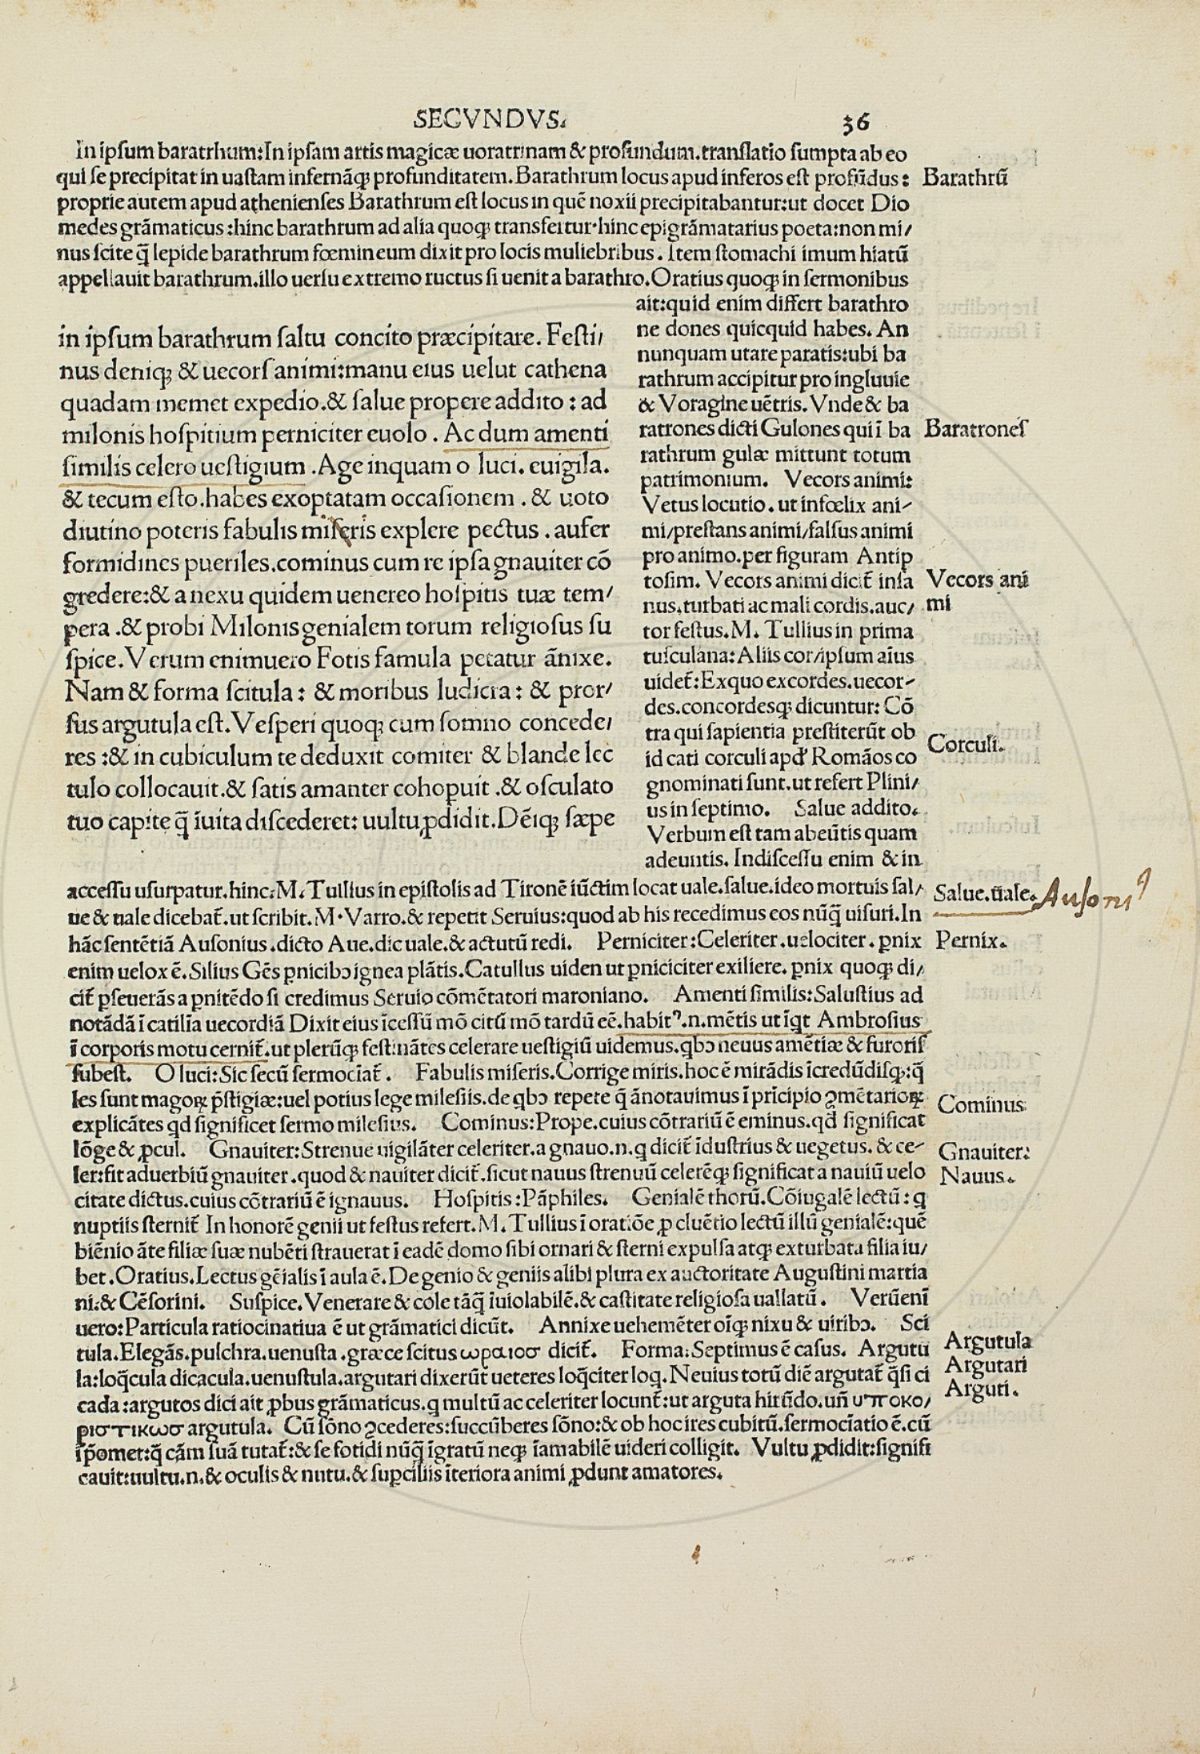 SECVNDVS.
36
In ipsum baratrhum: In ipsam artis magicæ uoratrinam & profundum. translatio sumpta ab eo
qui se precipitat in uastam infernāq; profunditatem. Barathrum locus apud inferos est profūdus:
Barathrū
proprie autem apud athenienses Barathrum est locus in quē noxii precipitabantur: ut docet Dio
medes grāmaticus: hinc barathrum ad alia quoq; transfertur. hinc epigrāmatarius poeta: non mi/
nus scite q̄ lepide barathrum fœmineum dixit pro locis muliebribus. Item stomachi imum hiatū
appellauit barathrum. illo uersu extremo ructus si uenit a barathro. Oratius quoq; in sermonibus
ait: quid enim differt barathro
ne dones quicquid habes. An
nunquam utare paratis: ubi ba
rathrum accipitur pro ingluuie
& Voragine uētris. Vnde & ba
ratrones dicti Gulones qui ī ba
Baratrones
rathrum gulæ mittunt totum
patrimonium. Vecors animi:
Vetus locutio. ut infœlix ani-
mi/prestans animi/falsus animi
pro animo. per figuram Antip
tosim. Vecors animi dicit̄ insa
Vecors ani
mi
nus. turbati ac mali cordis. auc/
tor festus. M. Tullius in prima
tusculana: Aliis cor ipsum aīus
uidet̄: Ex quo excordes. uecor-
des. concordesq; dicuntur: Cō
tra qui sapientia prestiterūt ob
Corculi.
id cati corculi apd' Romāos co
gnominati sunt. ut refert Plini/
us in septimo. Salue addito.
Verbum est tam abeūtis quam
adeuntis. Indiscessu enim & in
in ipsum barathrum saltu concito præcipitare. Festi/
nus deniq; & uecors animi: manu eius uelut cathena
quadam memet expedio. & salue propere addito: ad
milonis hospitium perniciter euolo. Ac dum amenti
similis celero uestigium. Age inquam o luci. euigila.
& tecum esto. habes exoptatam occasionem. & uoto
diutino poteris fabulis miseris explere pectus. aufer
formidines pueriles. cominus cum re ipsa gnauiter cō
gredere: & a nexu quidem uenereo hospitis tuæ tem/
pera. & probi Milonis genialem torum religiosus su
spice. Verum enimuero Fotis famula petatur ānixe.
Nam & forma scitula: & moribus ludicra: & pror/
sus argutula est. Vesperi quoq; cum somno concede/
res: & in cubiculum te deduxit comiter & blande lec
tulo collocauit. & satis amanter cohopuit. & osculato
tuo capite q̄ īuita discederet: uultu ꝓdidit. Dēiq; sæpe
accessu usurpatur. hinc. M. Tullius in epistolis ad Tironē iūctim locat uale. salue. ideo mortuis sal/
Salue. uale.
Ausoni⁹
ue & uale dicebat̄. ut scribit. M. Varro. & repetit Seruius: quod ab his recedimus eos nūq̄ uisuri. In
hāc sentētiā Ausonius. dicto Aue. dic uale. & actutū redi. Perniciter: Celeriter. uelociter. ꝑnix
Pernix.
enim uelox ē. Silius Gēs ꝑnicibꝰ ignea plātis. Catullus uiden ut ꝑniciciter exiliere. ꝑnix quoq; di/
cit̄ ꝑseuerās a ꝑnitēdo si credimus Seruio cōmētatori maroniano. Amenti similis: Salustius ad
notādā ī catilīa uecordiā Dixit eius īcessū mō citū mō tardū eē. habit⁹. n. mētis ut īqt Ambrosius
ī corporis motu cernit̄. ut plerūq; festinātes celerare uestigiū uidemus. qbꝰ neuus amētiæ & furoris
subest. O luci: Sic secū sermociat̄. Fabulis miseris. Corrige miris. hoc ē mirādis īcredūdisq;: q̄
les sunt magoꝝ p̄stigiæ: uel potius lege milesiis. de qbꝰ repete q̄ ānotauimus ī pricipio ꝯmētarioꝝ
explicātes qd significet sermo milesius. Cominus: Prope. cuius cōtrariū ē eminus. qd significat
Cominus
lōge & ꝓcul. Gnauiter: Strenue uigilāter celeriter. a gnauo. n. q dicit̄ īdustrius & uegetus. & ce-
Gnauiter:
ler: fit aduerbiū gnauiter. quod & nauiter dicit̄. sicut nauus strenuū celerēq; significat a nauiū uelo
Nauus.
citate dictus. cuius cōtrariū ē ignauus. Hospitis: Pāphiles. Genialē thorū. Cōiugalē lectū: q
nuptiis sternit̄ In honorē genii ut festus refert. M. Tullius ī oratiōe ꝓ cluētio lectū illū genialē: quē
biēnio āte filiæ suæ nubēti strauerat ī eadē domo sibi ornari & sterni expulsa atq; exturbata filia iu/
bet. Oratius. Lectus gēialis ī aula ē. De genio & geniis alibi plura ex auctoritate Augustini martia
ni. & Cēsorini. Suspice. Venerare & cole tāq̄ īuiolabilē. & castitate religiosa uallatū. Verūenī
uero: Particula ratiocinatiua ē ut grāmatici dicūt. Annixe uehemēter oīq; nixu & uiribꝰ. Sci
tula. Elegās. pulchra. uenusta. græce scitus ωραιοσ dicit̄. Forma: Septimus ē casus. Argutu
Argutula
la: loq̄cula dicacula. uenustula. argutari dixerūt ueteres loq̄citer loq. Neuius totū diē argutat̄ q̄si ci
Argutari
cada: argutos dici ait ꝓbus grāmaticus. q multū ac celeriter locunt̄: ut arguta hirūdo. uñ υποκο/
Arguti.
ριστικωσ argutula. Cū sōno ꝯcederes: succūberes sōno: & ob hoc ires cubitū. sermocīatio ē. cū
īp̄omet: q̄ cām suā tutat̄: & se fotidi nūq̄ īgratū neq; īamabilē uideri colligit. Vultu ꝓdidit: signifi
cauit: uultu. n. & oculis & nutu. & suꝑciliis īteriora animi ꝓdunt amatores.